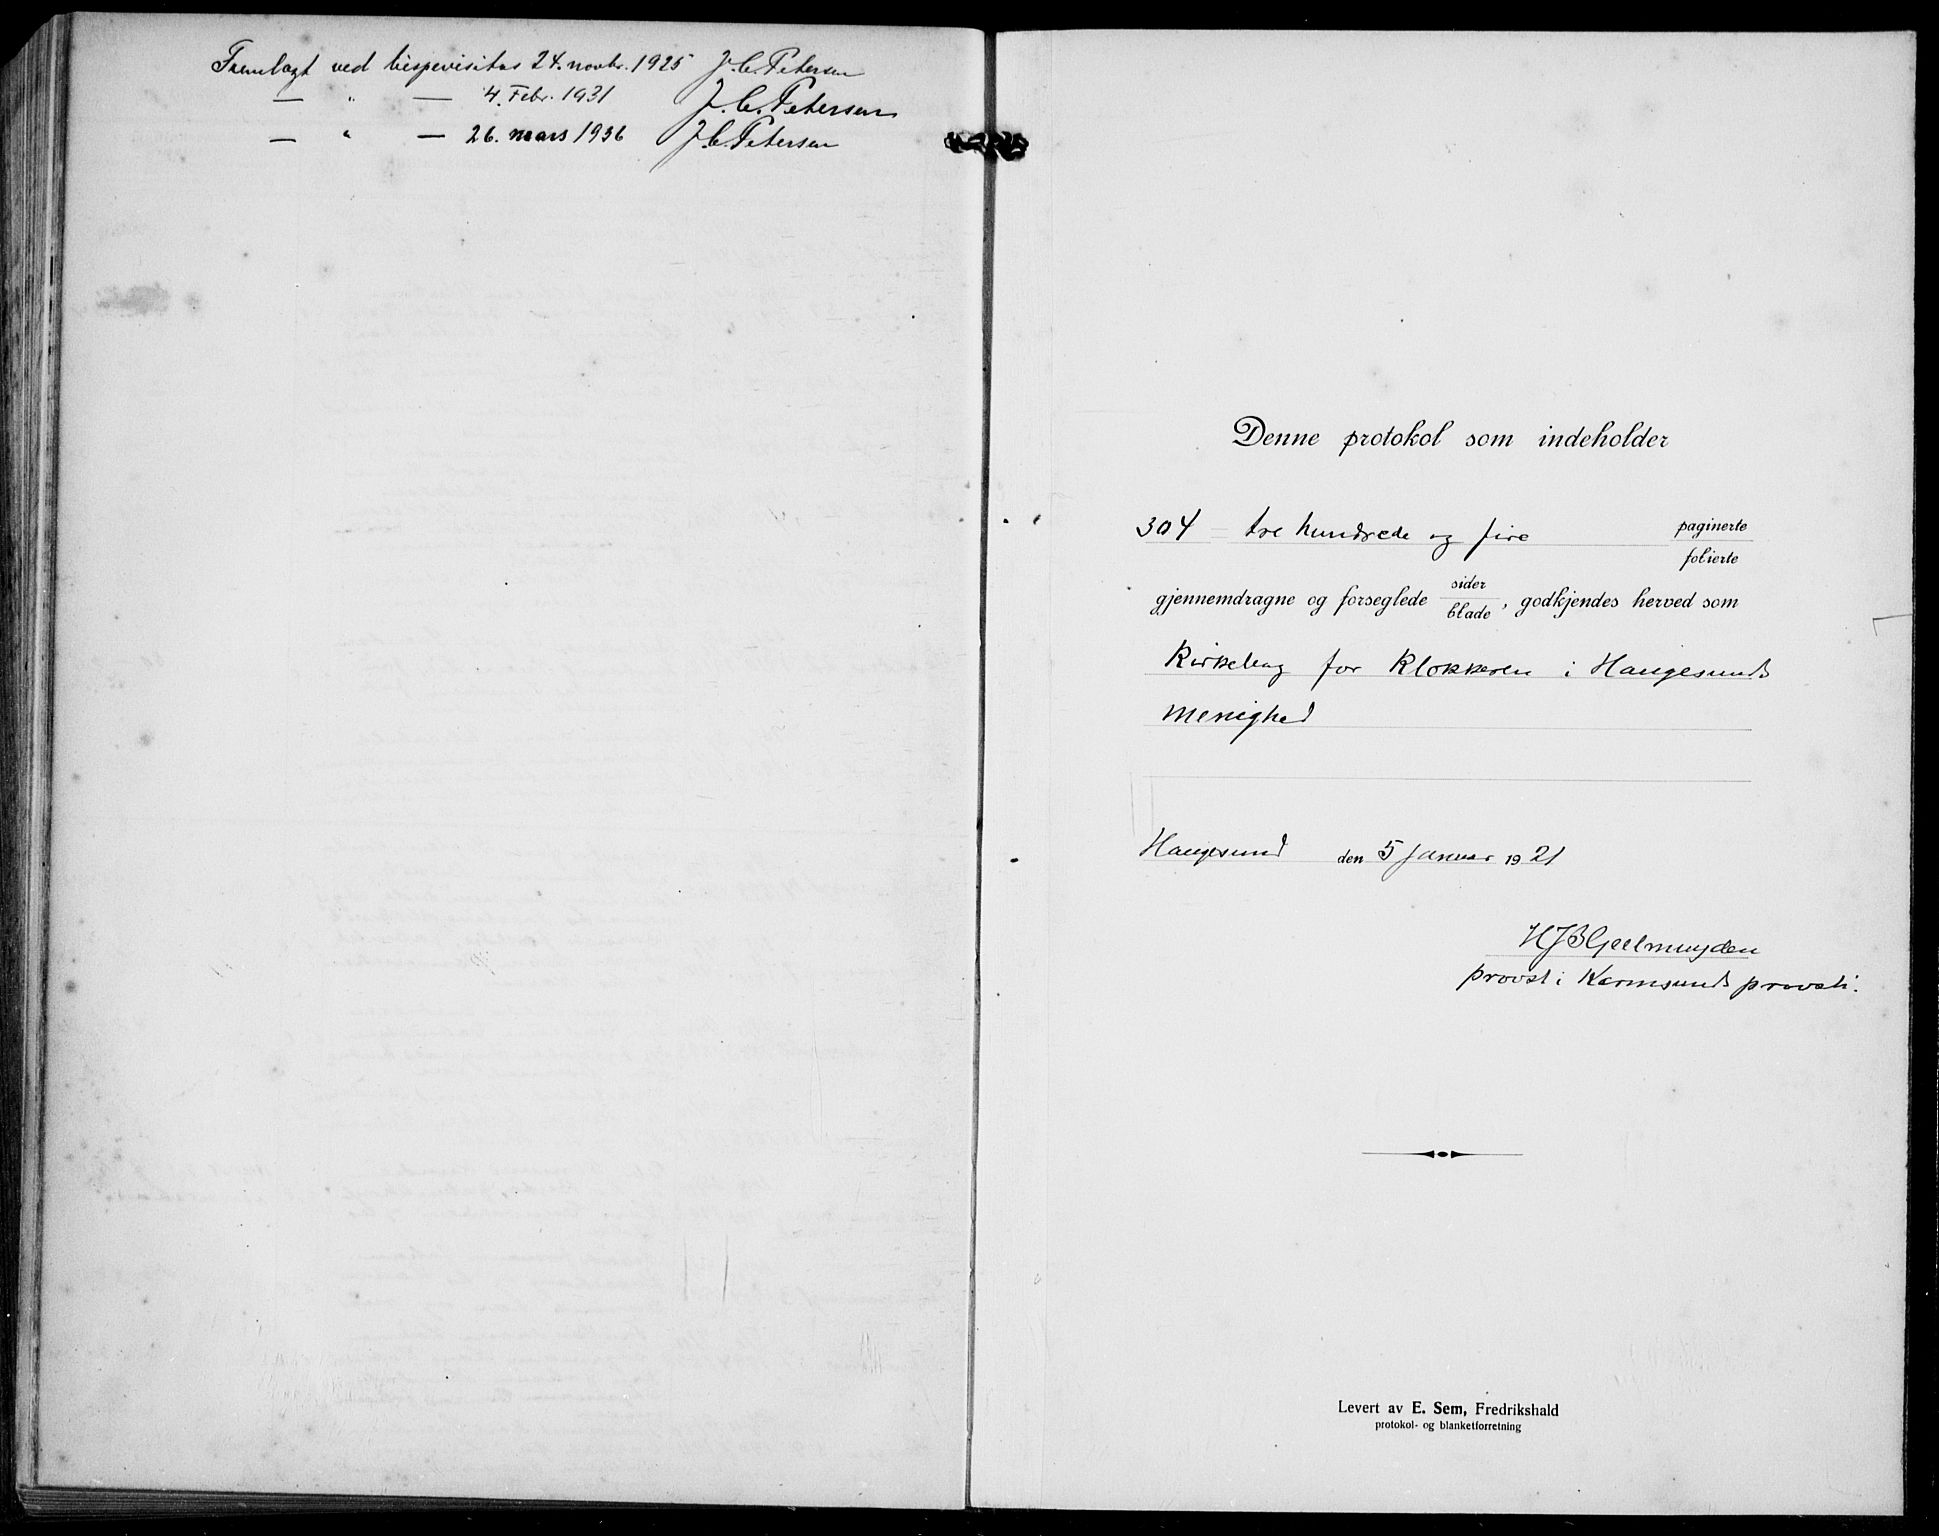 Fremlagt ved bispevisitas 24. novbr. 1925 J. C. Petersen
— " — 4. Febr. 1931 J. C. Petersen
— " — 26. mars 1936 J. C. Petersen
Denne protokol som indeholder
304 = tre hundrede og fire paginerte
folierte
gjennemdragne og forseglede sider
blade, godkjendes herved som
Kirkebog for Klokkeren i Haugesunds
menighed
Haugesund den 5 Januar 1921
HJBGeelmuyden
provst i Karmsunds provsti.
Levert av E. Sem, Fredrikshald
protokol- og blanketforretning